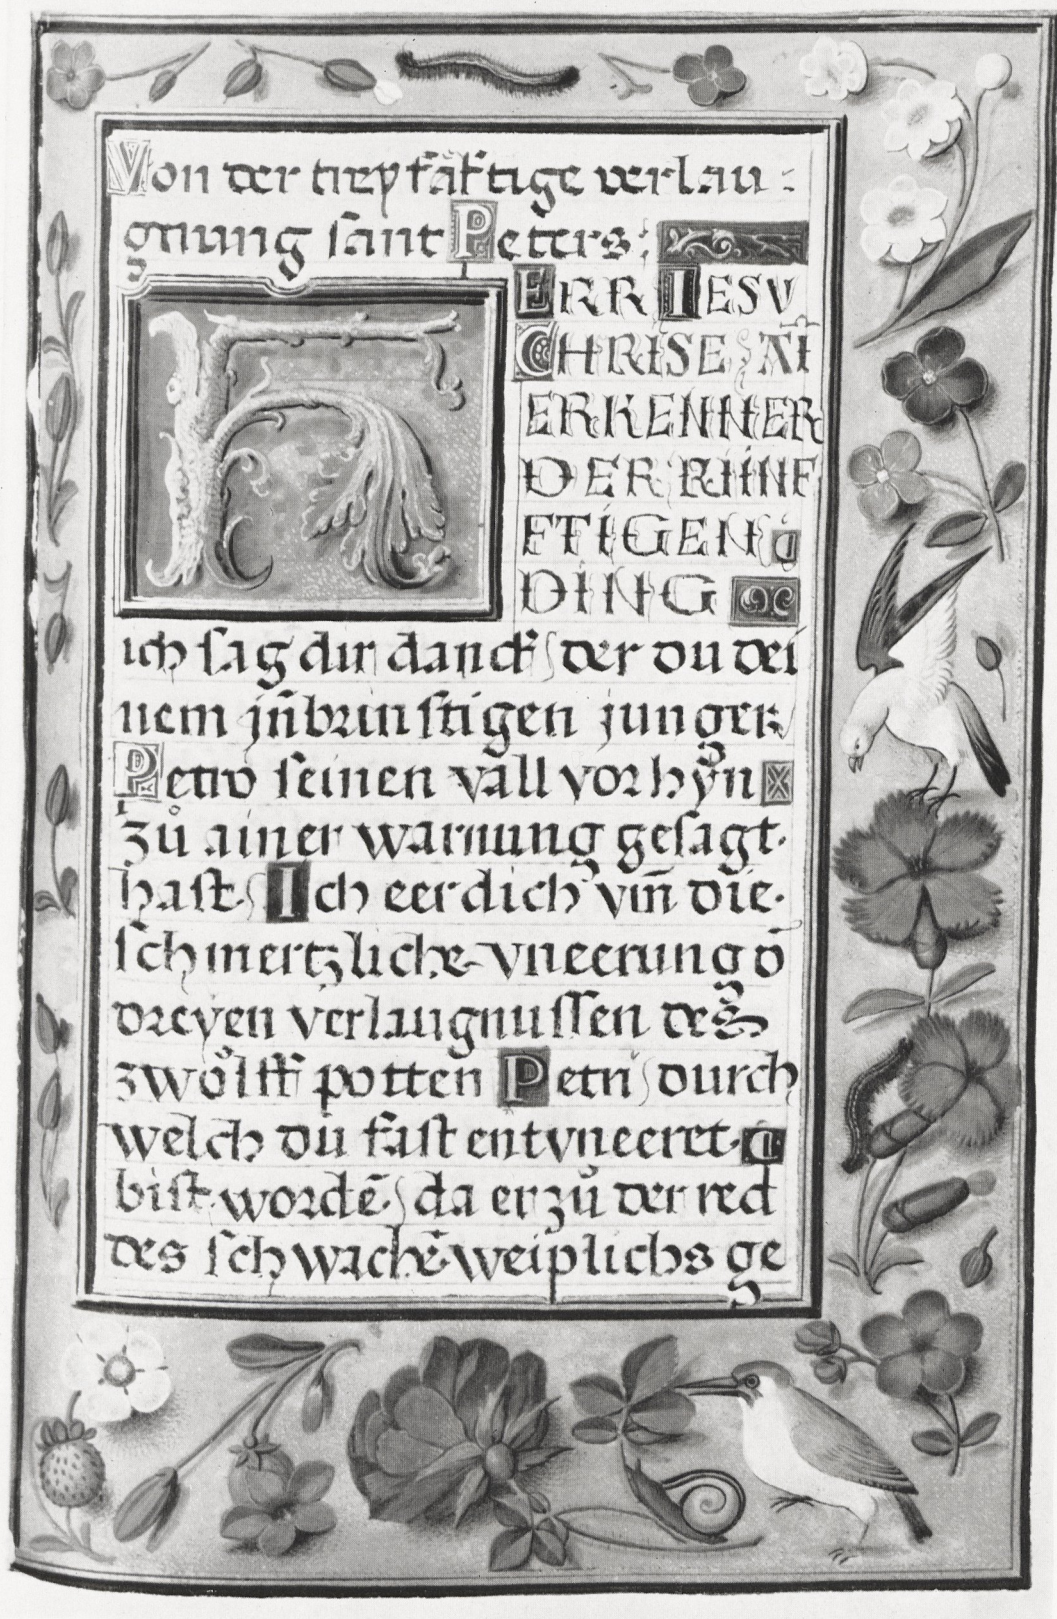 Von der treyfältige verlau:
gnung sant Peters:
HERR IESV
CHRISE AĪ
ERKENNER
DER KHINF
FTIGEN
DING
ich sag dir danck der du dei
nem jn̄brinstigen junger
Petro seinen vall vorhÿn
zů ainer warnung gesagt
hast Ich eer dich vm̄ die
schmertzliche vneerung d̄
dreyen verlaugnussen des
zwo̊lff potten Petri durch
welch du fast entvneeret
bist wordē da er zů der red
des schwachē weiplichs ge